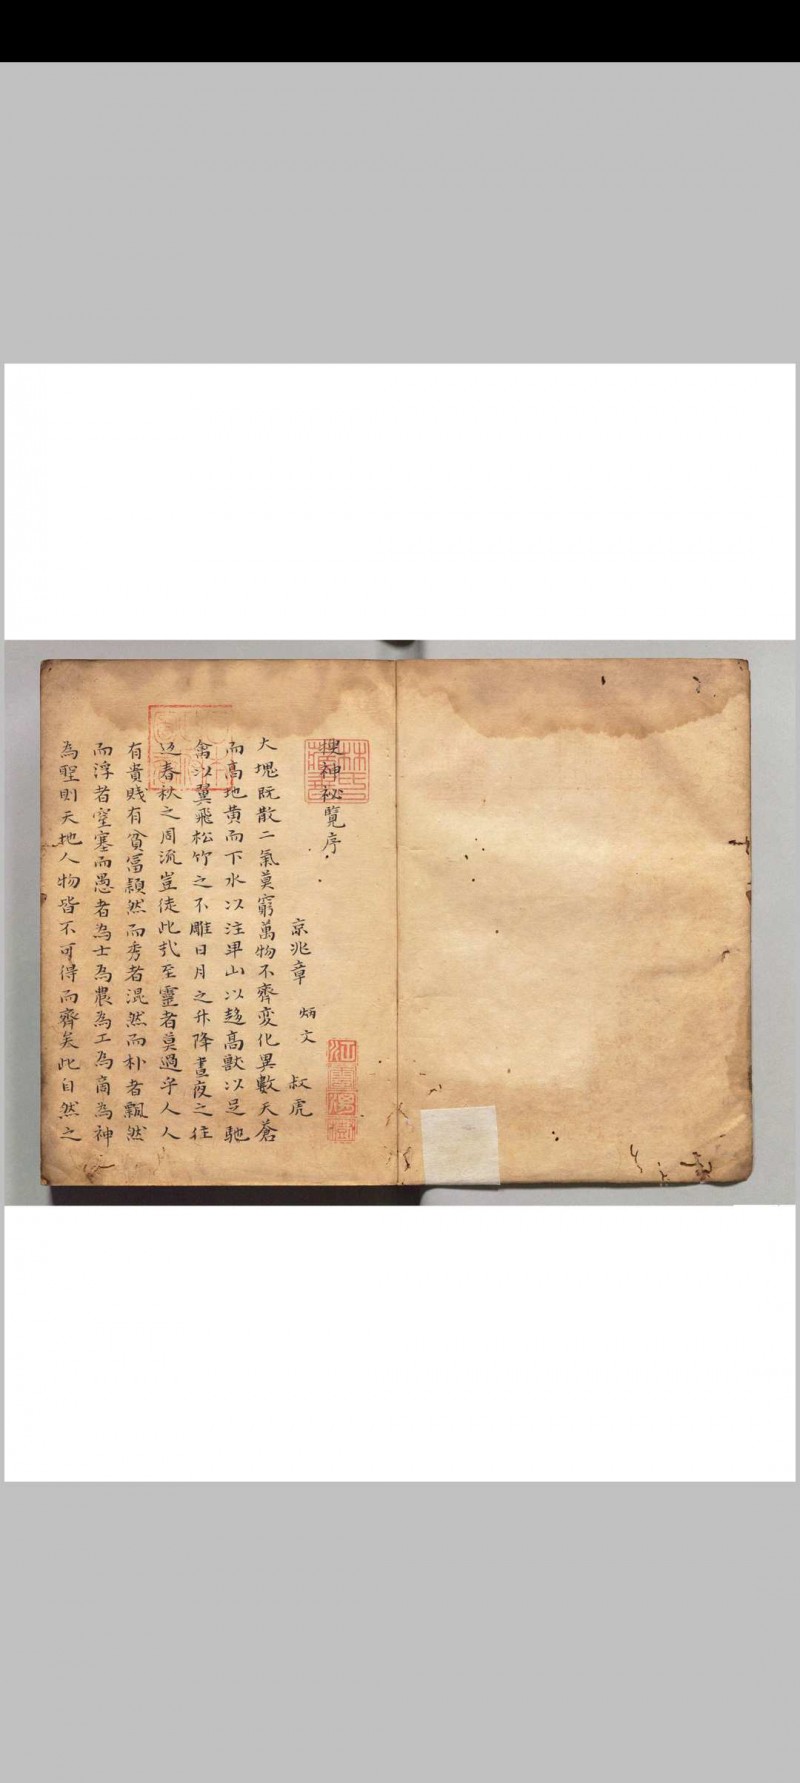 搜神祕覽序
京兆章 炳文 叔虎
大塊既散二氣莫窮萬物不齊変化異數天蒼
而高地黄而下水以注卑山以趍高獸以足馳
禽以翼飛松竹之不雕日月之升降晝夜之徃
返春秋之周流豈徒此㢤至靈者莫過乎人人
有貴賤有貧冨頴然而秀者混然而朴者飄然
而浮者窒塞而愚者為士為農為工為商為神
為聖則天地人物皆不可得而齊矣此自然之
林氏
藏書
江雲渭樹